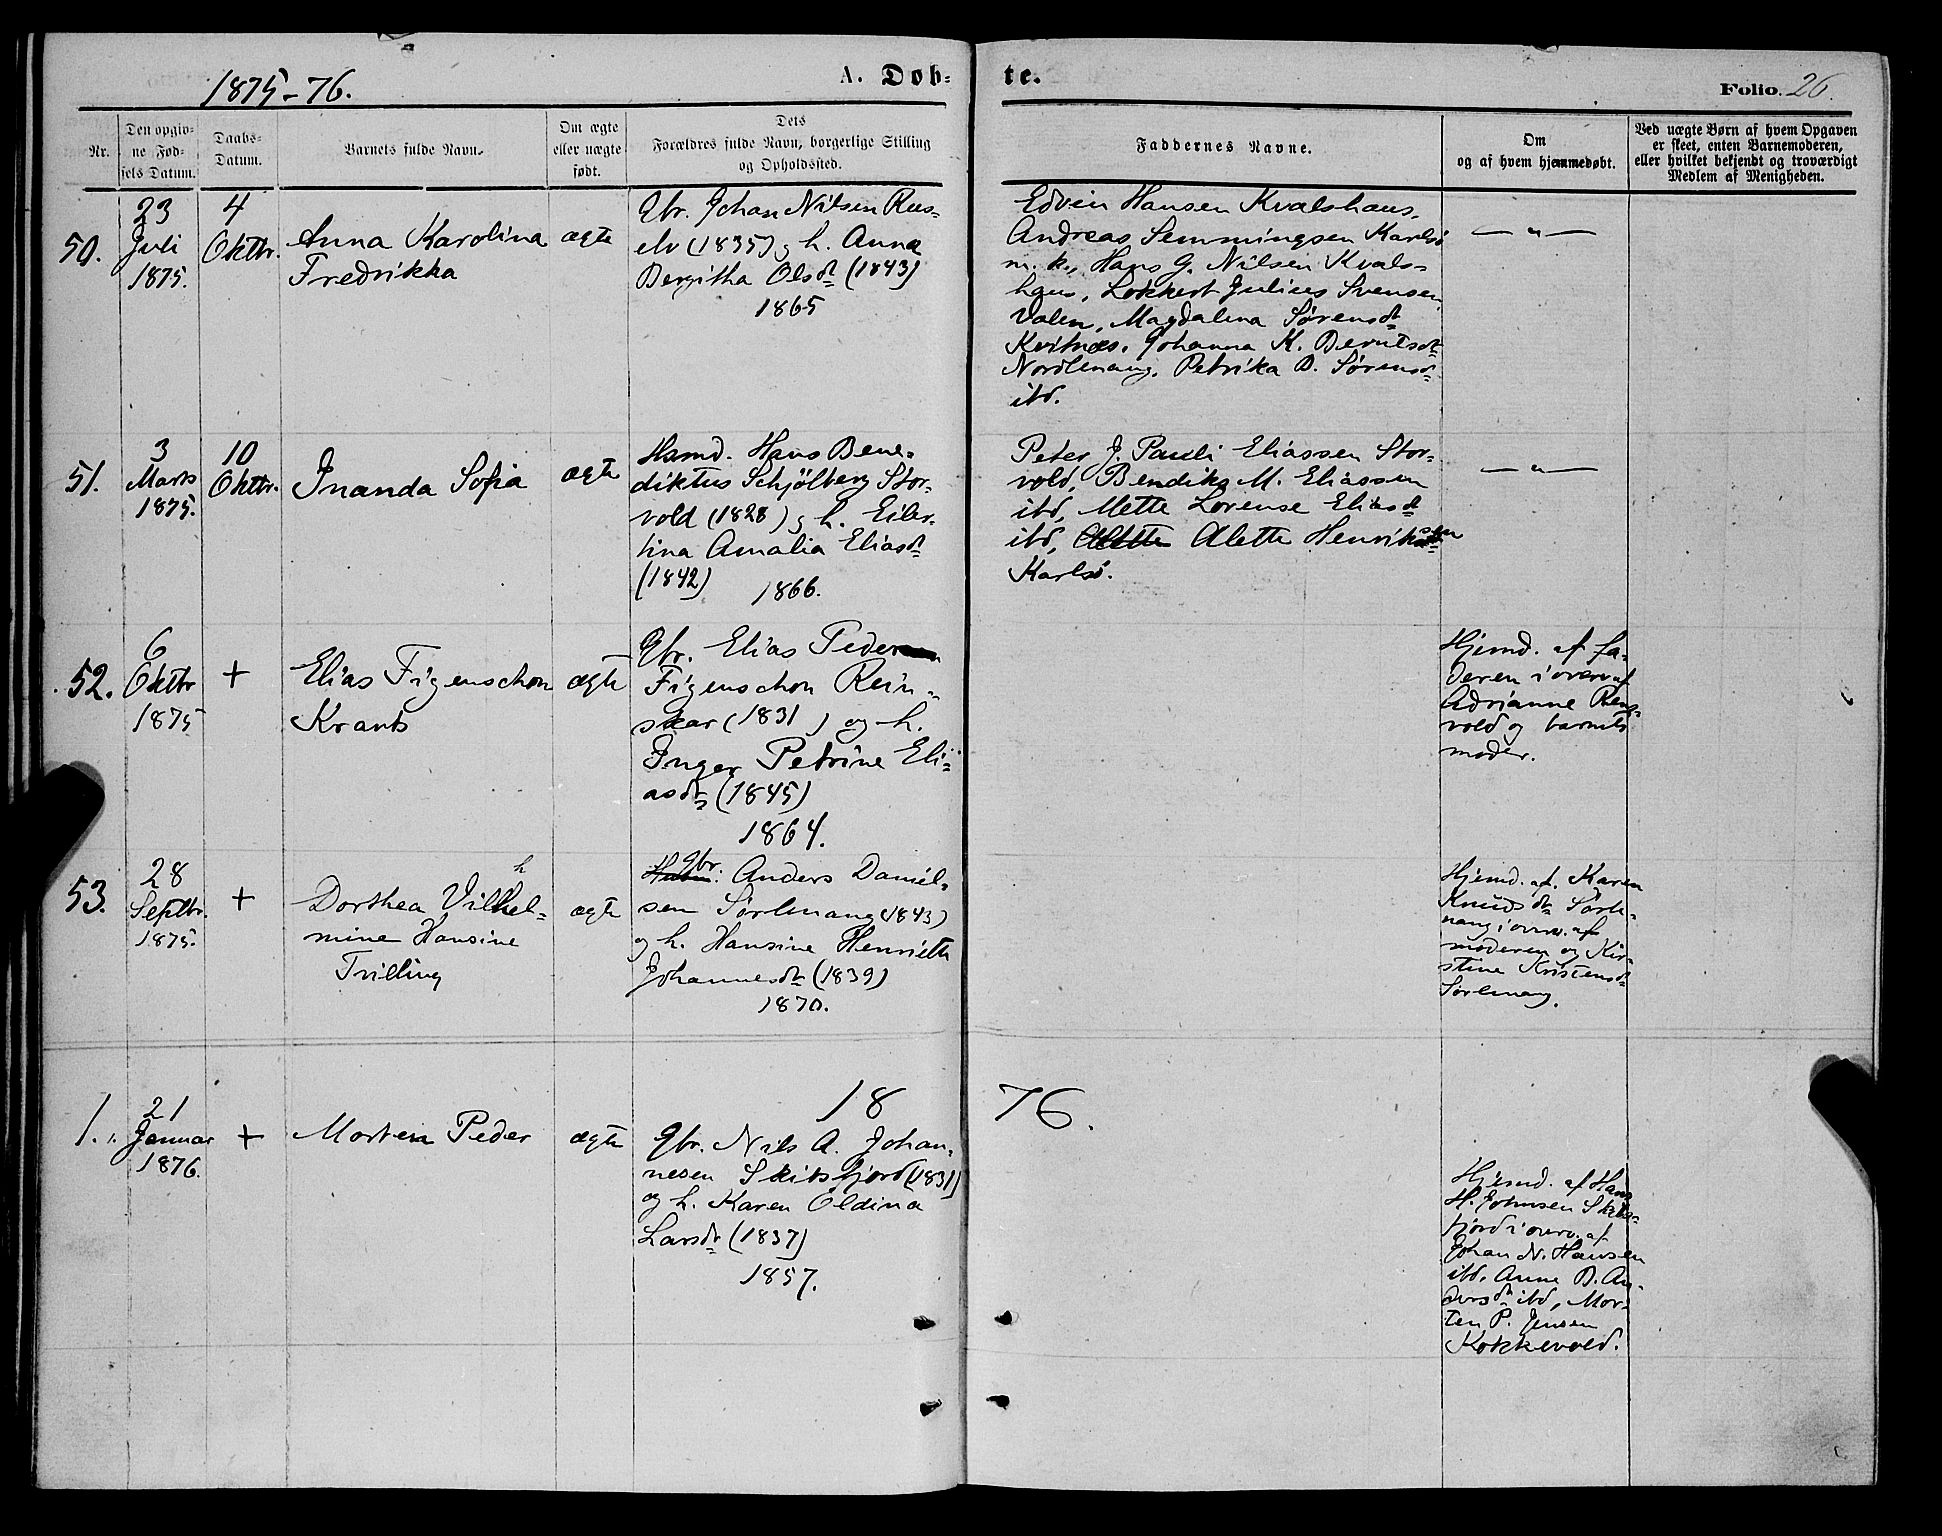 1875-76.
A. Døb-
te.
Folio. 26.
Nr.
Den opgiv-
ne Fød-
sels Datum.
Daabs-
Datum.
Barnets fulde Navn.
Om ægte
eller uægte
født.
Dets
Forældres fulde Navn, borgerlige Stilling
og Opholdssted.
Faddernes Navne.
Om
og af hvem hjemmedøbt.
Ved uægte Børn af hvem Opgaven
er skeet, enten Barnemoderen,
eller hvilket bekjendt og troværdigt
Medlem af Menigheden.
50.
23
Juli
1875.
4
Oktbr.
Anna Karolina
Fredrikka
ægte
Gbr. Johan Nilsen Rus-
elv (1835) og h. Anna
Bergitha Olsdt (1843)
1865
Edvin Hansen Kvalshaus,
Andreas Semmingsen Karlsö
m. k., Hans G. Nilsen Kvals-
haus, Lokkert Julius Svensen
Valen, Magdalena Sørensdt
Kvitnæs, Johanna K. Berntsdt
Nordlenang, Petrika B. Sørensdt
ibd.
— " —
51.
3
Marts
1875.
10
Oktbr.
Inanda Sofia
ægte
Hsmd. Hans Bene-
diktus Schjölberg Stor-
vold (1828) og h. Eiler-
tina Amalia Eliasdt
(1842)
1866.
Peter J. Pauli Eliassen Stor-
vold, Bendiks M. Eliassen
ibd, Mette Lorense Eliasdt
ibd, Alette Henriksen
Karlsö.
— " —
52.
6
Oktbr
1875
+
Elias Figenschou
Krants
ægte
Gbr. Elias Peder
Figenschou Rein-
skar (1831) og h.
Inger Petrine Eli-
asdt (1845)
1864.
Hjemd. af fa-
deren i overv af
Adrianne Reng-
vold og barnets
moder.
53.
28
Septbr.
1875.
+
Dorthea Vilhel-
mine Hansine
Trilling
ægte
Gbr. Anders Daniel-
sen Sørlenang (1843)
og h. Hansine Henriette
Johannesdt (1839)
1870.
Hjemd. af. Karen
Knudsdt Sørle-
nang i overv. af
moderen og Kir-
stine Kristensdt
Sørlenang.
1876.
1.
21
Januar
1876.
+
Morten Peder
ægte
Gbr. Nils A. Johan-
nesen Skitsfjord (1831)
og h. Karen Oldina
Larsdt (1837)
1857.
Hjemd. af Hans
H. Johnsen Skits-
fjord i overv. af
Johan N. Hansen
ibd. Anne B. An-
dersdt ibd, Mor-
ten P. Jensen
Kokkevold.